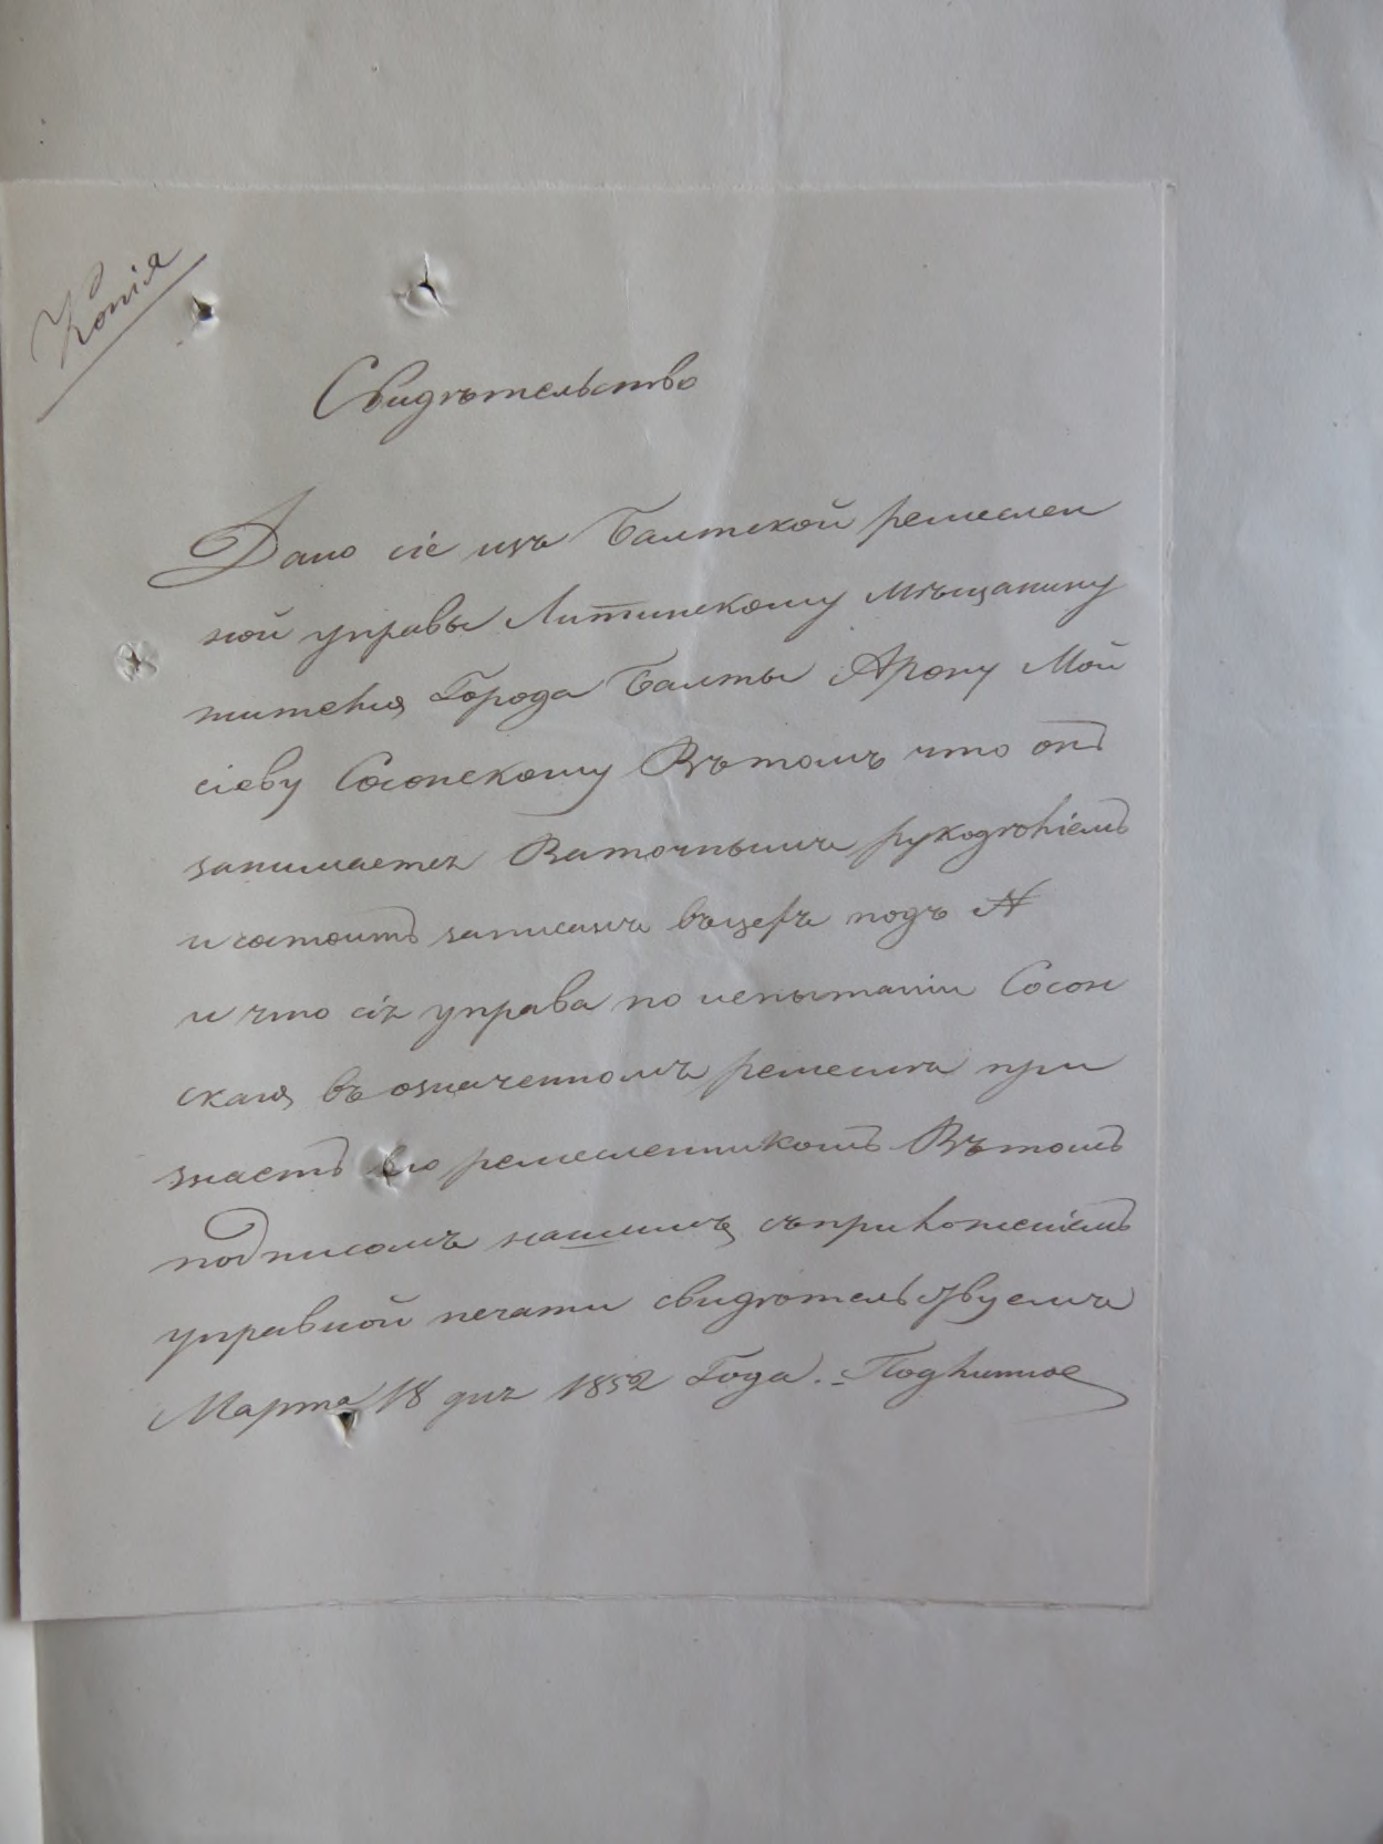 Копія
Свидѣтельство
Дано сіе изъ Балтской ремеслен
ной управы Литинскому мѣщанину
жителю Города Балты Арону Мой
сіеву Сосонскому Въ томъ что онъ
занимается Ваточнымъ рукодѣліемъ
и состоитъ записанъ въ цехъ подъ №
и что сія управа по испытаніи Сосон
скаго въ означенномъ ремеслѣ при
знаетъ его ремесленникомъ Въ томъ
подписомъ нашимъ съ приложеніемъ
управной печати свидѣтельствуемъ
Марта 18 дня 1852 Года. Подлинное